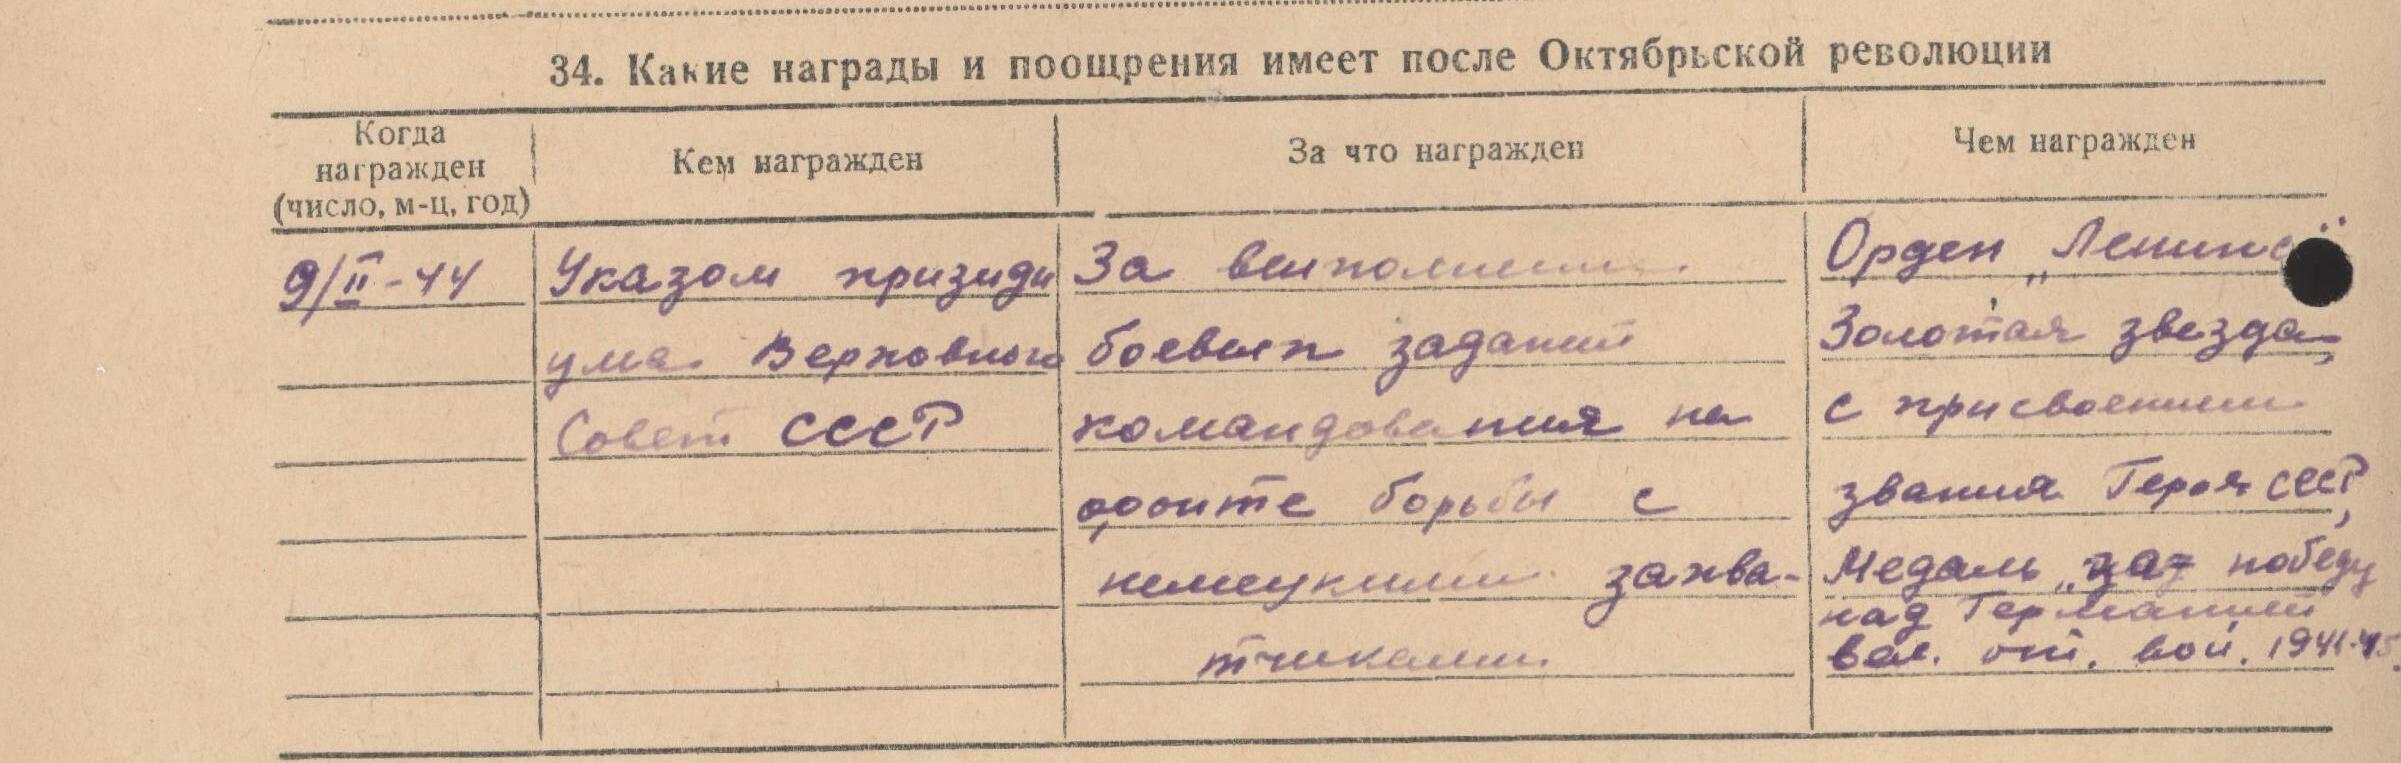 34. Какие награды и поощрения имеет после Октябрьской революции
Когда
награжден
(число, м-ц, год)
Кем награжден
За что награжден
Чем награжден
9/II-44
Указом призиди
ума Верховного
Совет СССР
За выполнение
боевых заданий
командования на
фронте борьбы с
немецкими захва-
тчиками.
Орден „Ленина"
Золотая звезда,
с присвоением
звания Героя СССР,
Медаль „за победу
над Германией
вел. от. вой. 1941-45.